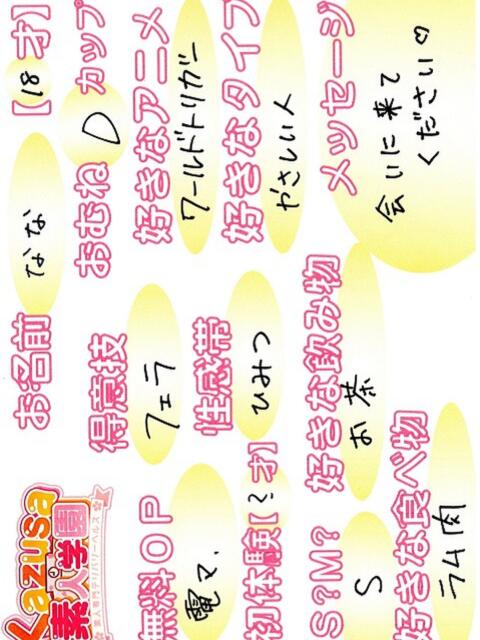 Kazusa
素人学園
お名前 なな 【18才】
おむね D カップ
得意技 フェラ
好きなアニメ ワールドトリガー
性感帯 ひみつ
好きなタイプ やさしい人
無料OP 電マ、
初体験【?才】
好きな飲み物 お茶
メッセージ
会いに来て
ください♡
S?M? S
好きな食べ物 ラム肉